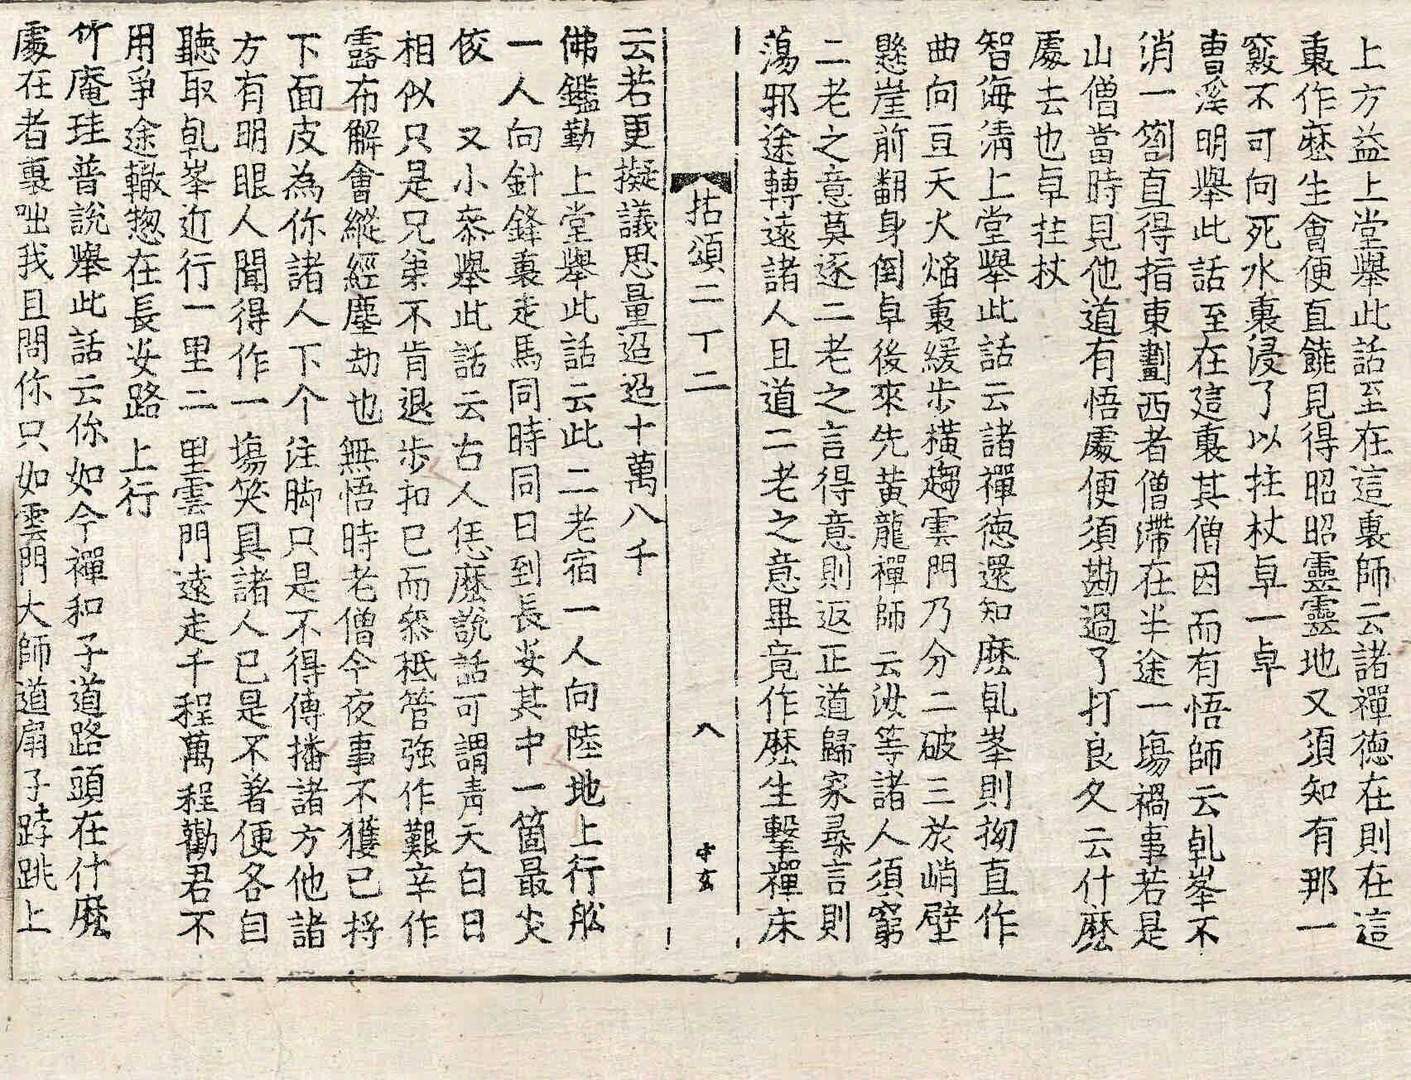 上方益上堂擧此話至在這裏師云諸禪德在則在這
裏作麽生會便直饒見得昭昭靈靈地又須知有那一
竅不可向死水裏浸了以拄杖卓一卓
曹溪明擧此話至在這裏其僧因而有悟師云乹峯不
消一劄直得指東劃西者僧滯在半途一塲禍事若是
山僧當時見他道有悟處便須勘過了打良久云什麽
處去也卓拄杖
智海淸上堂擧此話云諸禪德還知麽乹峯則拗直作
曲向亘天火焰裏緩步橫趨雲門乃分二破三於峭壁
懸崖前翻身倒卓後來先黃龍禪師云汝等諸人須窮
二老之意莫逐二老之言得意則返正道歸家尋言則
蕩邪途轉遠諸人且道二老之意畢竟作麽生擊禪床
拈頌二丁二 八 守玄
云若更擬議思量迢迢十萬八千
佛鑑勤上堂擧此話云此二老宿一人向陸地上行舩
一人向針鋒裏走馬同時同日到長安其中一箇最尖
佼 又小叅擧此話云古人恁麽說話可謂靑天白日
相似只是兄弟不肯退步扣已而叅秪管强作艱辛作
露布解會縱經塵劫也無悟時老僧今夜事不獲已捋
下面皮為你諸人下个注脚只是不得傳播諸方他諸
方有明眼人聞得作一塲笑具諸人已是不著便各自
聽取乹峯近行一里二里雲門遠走千程萬程勸君不
用爭途轍惣在長安路上行
竹庵珪普說擧此話云你如今禪和子道路頭在什麽
處在者裏咄我且問你只如雲門大師道扇子䟦跳上